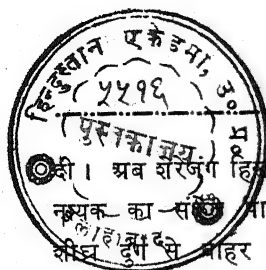 हिन्दुस्तान एकेडेमी, उ० प्र०
५५१६
पुस्तकालय
दी। अब शेरजंग हि
नायक का पा
शीघ्र दुर्ग से बाहर